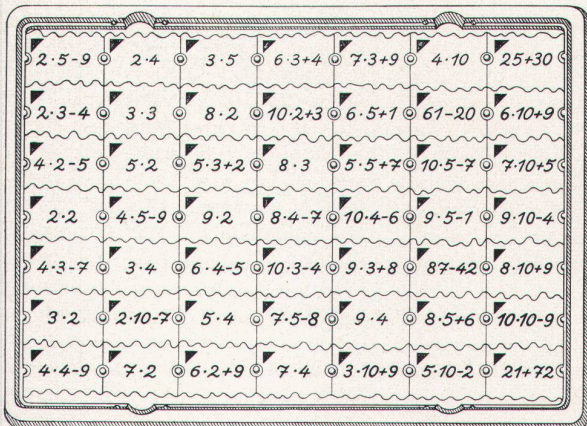 2·5-9 2·4 3·5 6·3+4 7·3+9 4·10 25+30
2·3-4 3·3 8·2 10·2+3 6·5+1 61-20 6·10+9
4·2-5 5·2 5·3+2 8·3 5·5+7 10·5-7 7·10+5
2·2 4·5-9 9·2 8·4-7 10·4-6 9·5-1 9·10-4
4·3-7 3·4 6·4-5 10·3-4 9·3+8 87-42 8·10+9
3·2 2·10-7 5·4 7·5-8 9·4 8·5+6 10·10-9
4·4-9 7·2 6·2+9 7·4 3·10+9 5·10-2 21+72